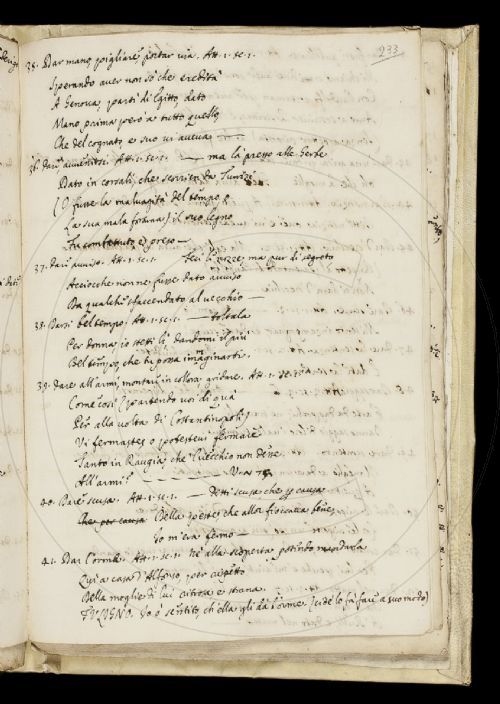 233
35. Dar mano, pigliare, portar via. Att. 1. sc. 1.
Sperando aver non so che eredità
A Genova, partì di Egitto, dato
Mano prima però a tutto quello,
Che del cognato, e suo vi aveva
36. Att. 1. sc. 1. ma là presso alle Gerbe
Dato in corsali, che da Tunisi
(O fusse la malvagità del tempo,
La sua mala fortuna) il suo legno
Fu combattuto e preso
37. Dare avviso. Att. 1. sc. 1. Feci le nozze, ma pur di segreto
Acciocche non ne fusse dato avviso
Da qualche sfaccendato al vecchio
38. Darsi bel tempo. Att. 1. sc. 1. tolsala
Per donna, io stetti lì dandomi il più
Bel tempo, che tu possa immaginarti.
39. Dare all'armi, montare in collora, gridare. Att. 1. sc.
Come così (partendo voi di qua
Per alla volta di Costantinopoli)
Vi fermaste, o poteste vi fermare
Tanto in Raugia, che il vecchio non
All'armi?
40. Dare scusa. Att. 1. sc. 1. Detti scusa che
Che per causa Bella peste, che allor fioccava
Io m'era fermo
41. Dar l'orme. Att. 1. sc. 1. Nè alla scoperta potendo mandarla
Qui a casa d'Alfonso, per rispetto
Della moglie di lui ritrosa e strana.
Io ò sentito, ch'ella gli dà l'orme, (cioè lo fa fare a suo modo)